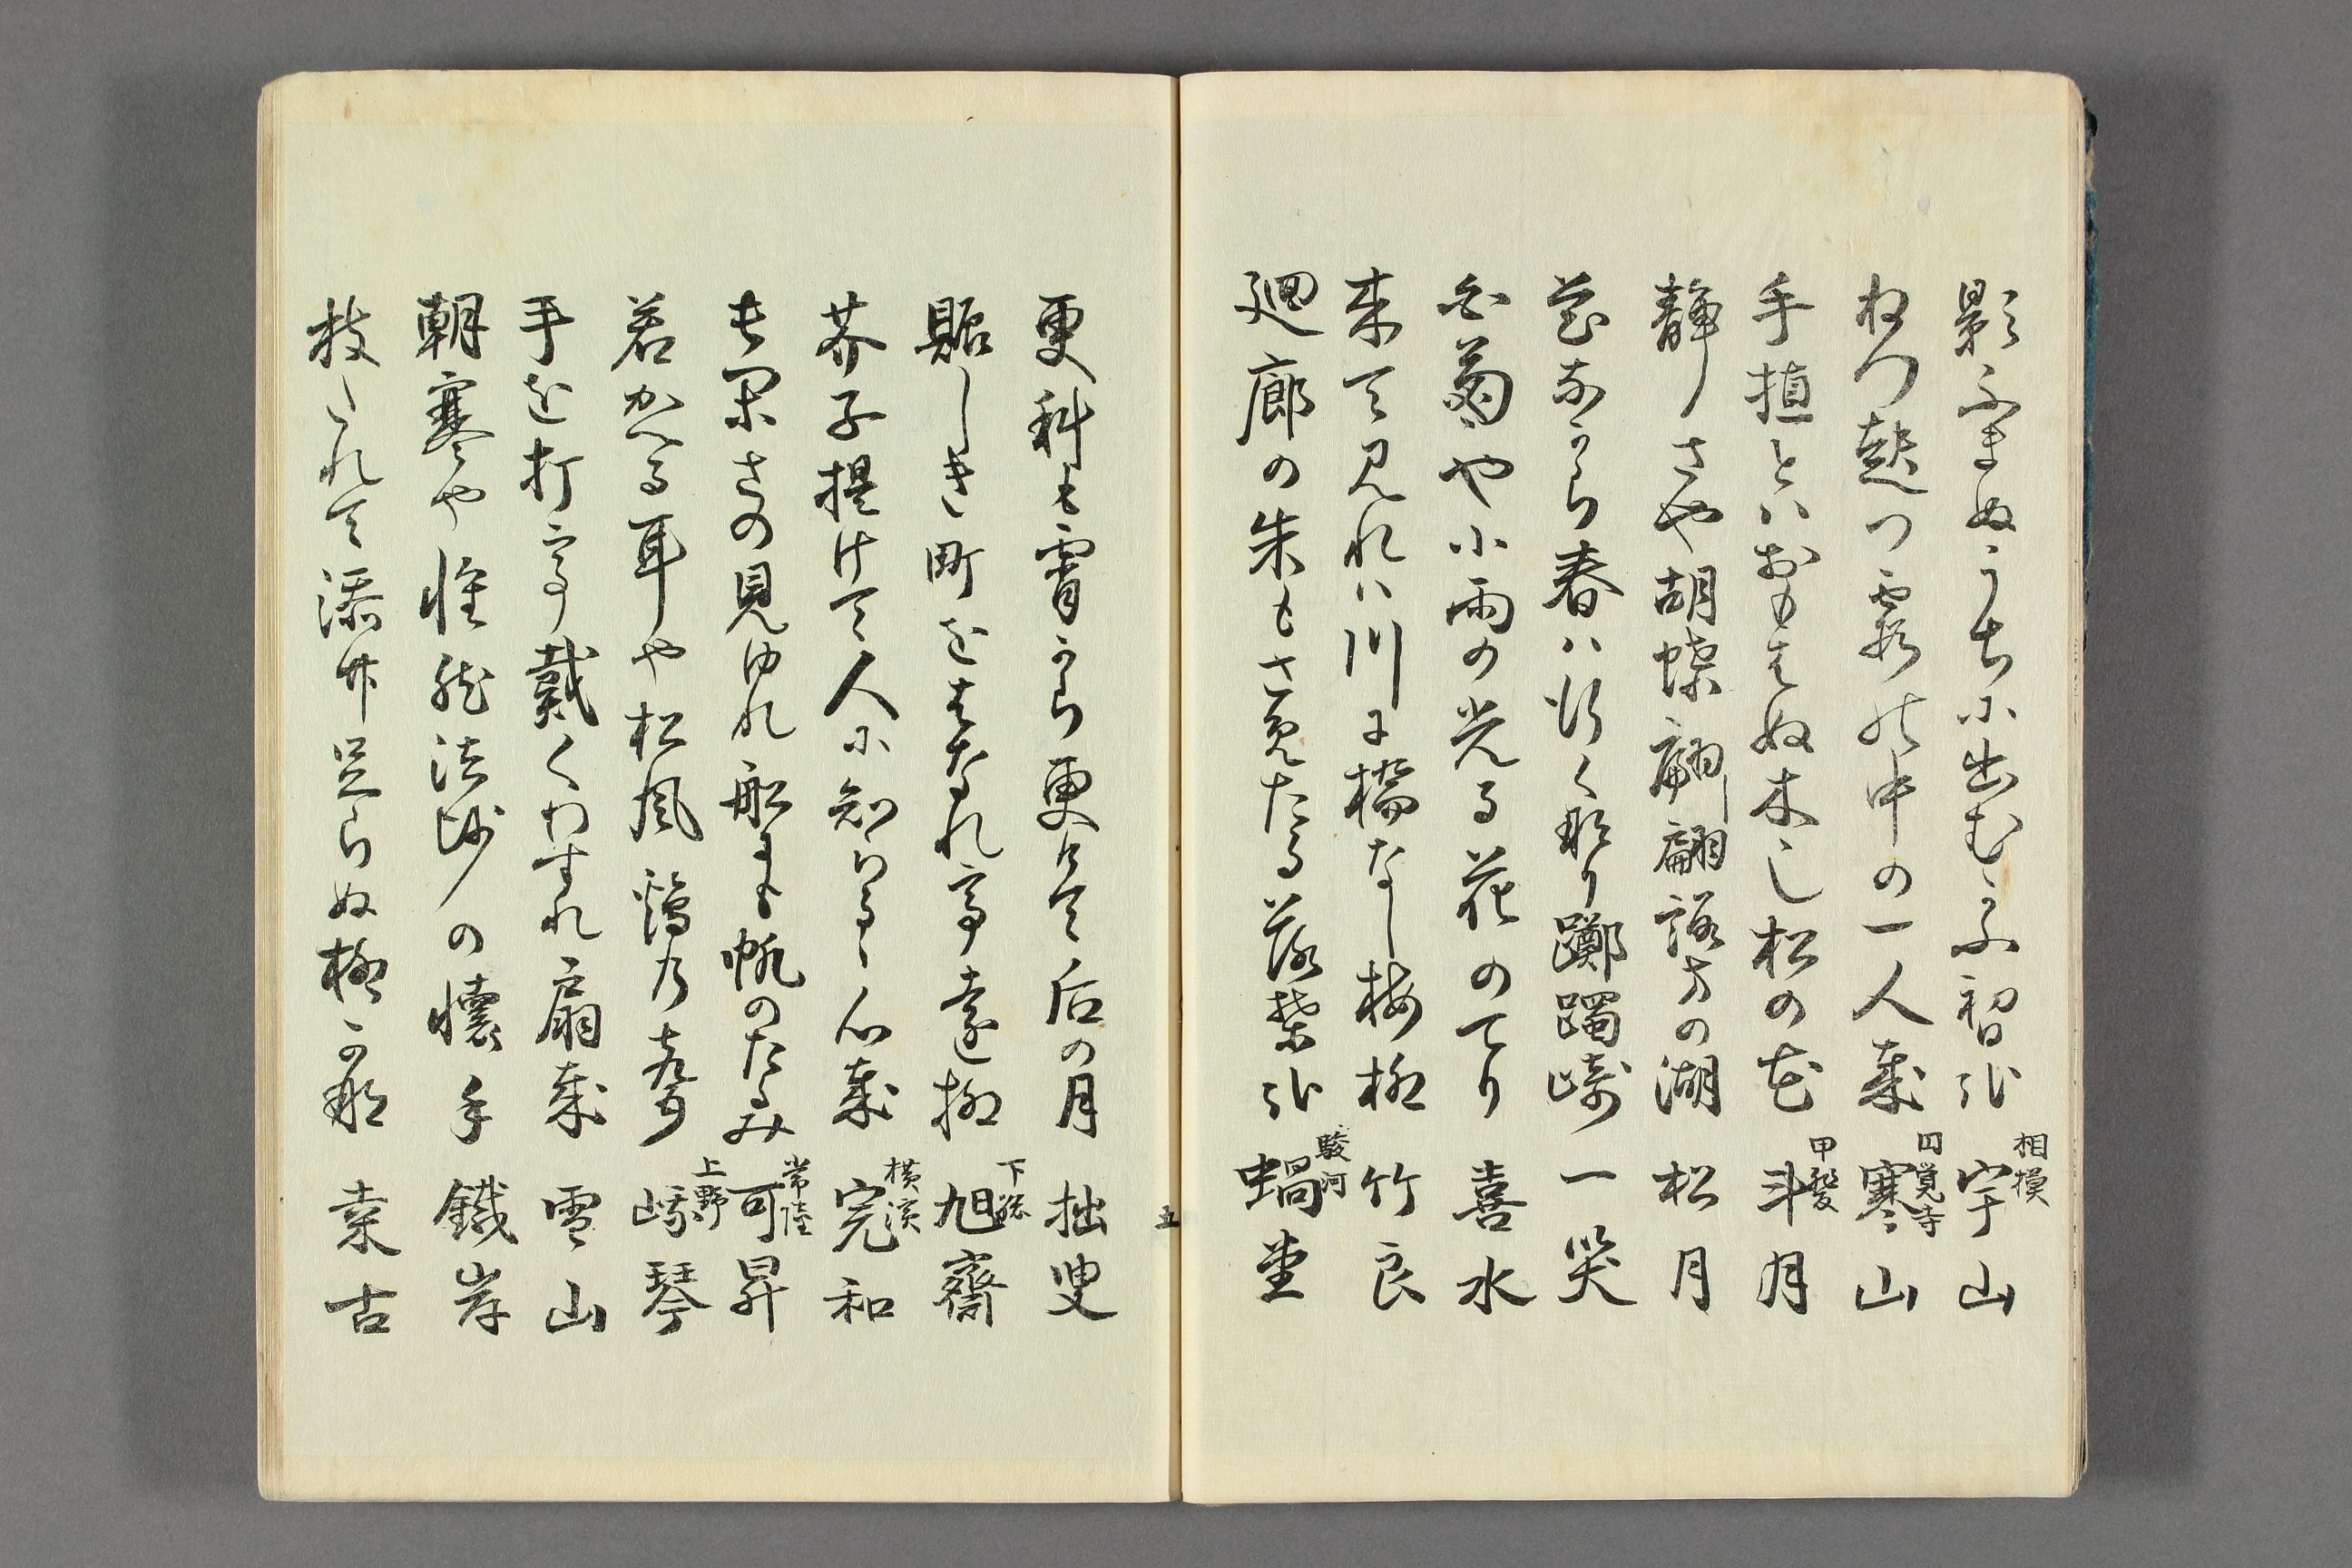 影ふまぬうちに出むかふ初日哉 相模 宇山
ねつ起つ霞の中の一人哉 円覚寺 寒山
手植とハおもはぬ木也松の花 甲斐 斗月
静さや胡蝶翩翻諏方の湖 松月
花なから春ハ行くなり躑躅崎 一笑
白菊や小雨の光る花のてり 喜水
来て見れハ川に橋なし梅柳 竹良
廻廊の朱もさめたる落葉哉 駿河 蝸堂
五
更科も宵から更けて后の月 拙叟
賑しき町をはなれ亭遠柳 下総 旭齋
芥子提けて人に知らるゝ心哉 横濱 完和
長閑さの見ゆれ船にも帆のたるみ 常陸 可昇
若かへる耳や松風鶴乃聲 上野 嶹琴
手を打亭戴くわすれ扇哉 雪山
朝寒や惟然法師の懐手 鐵岸
枝しれて添竹足らぬ柳かな 素古